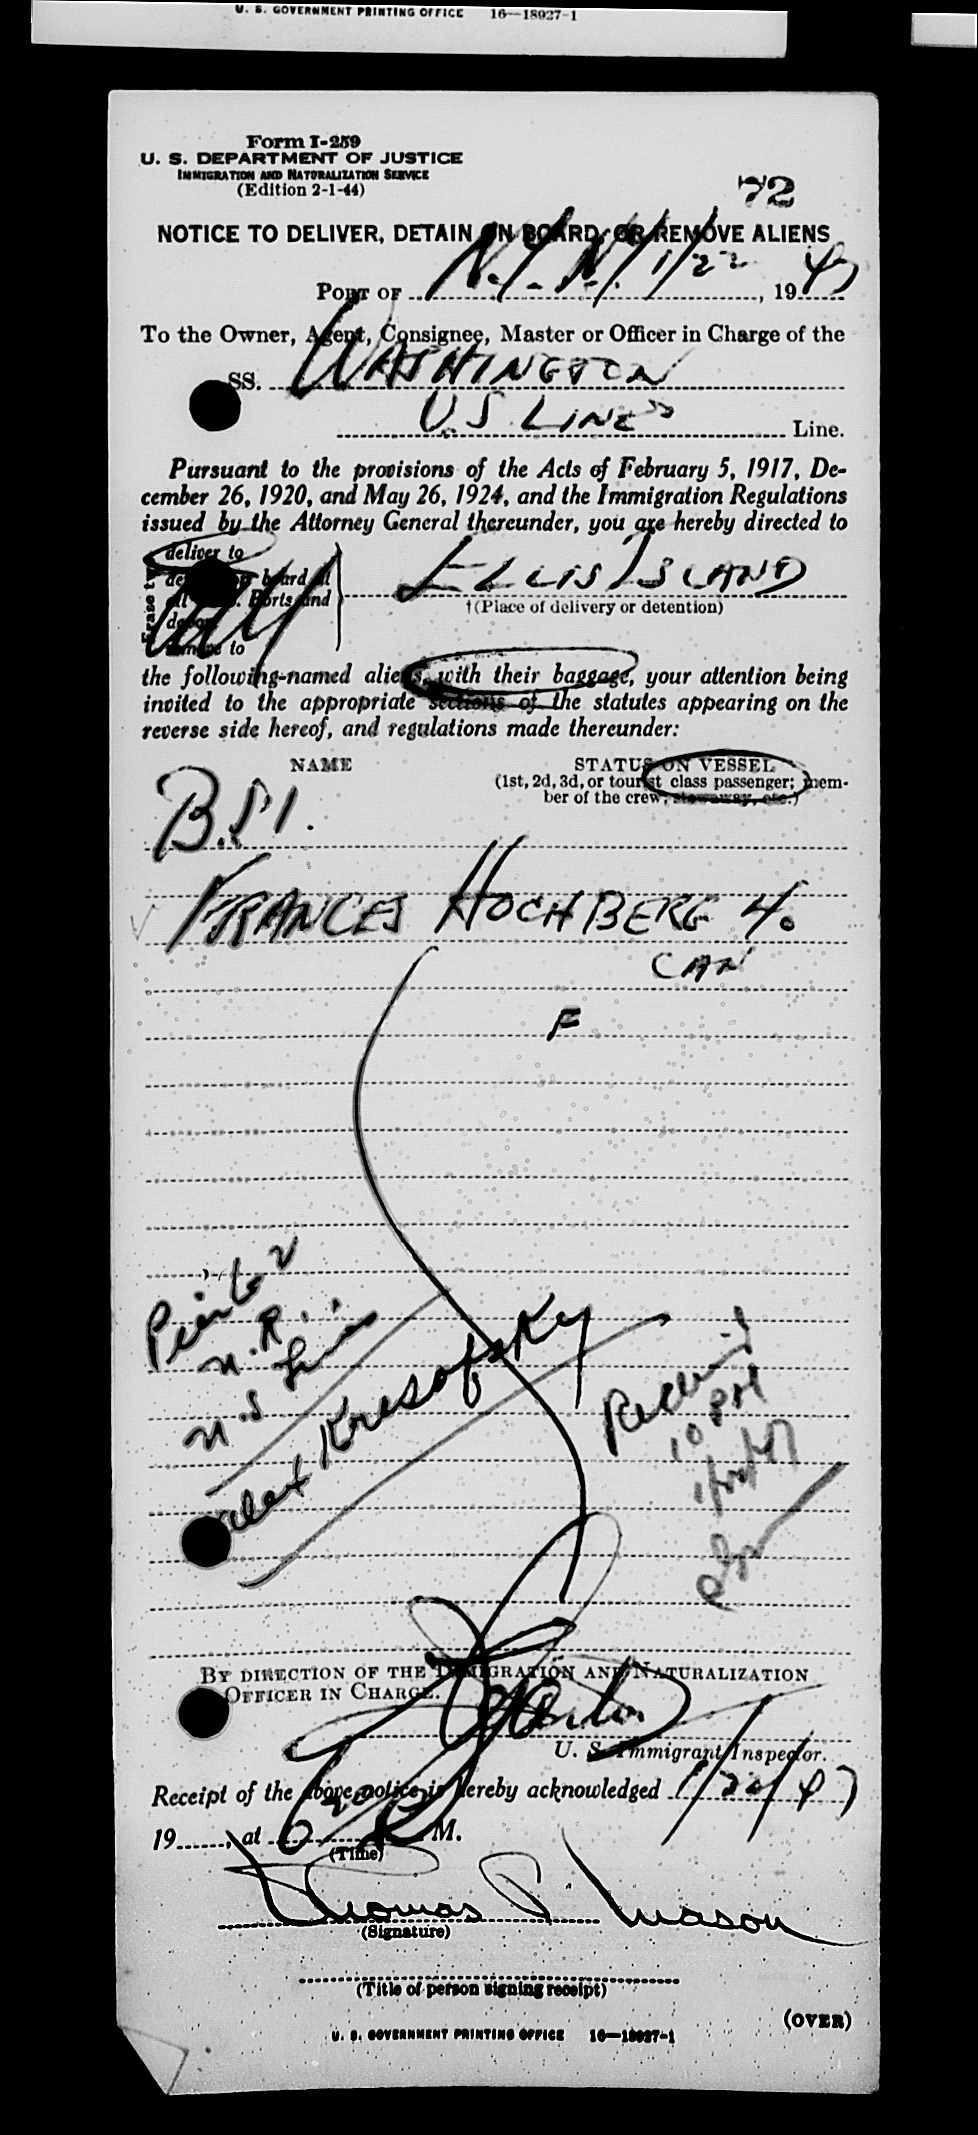 U. S. GOVERNMENT PRINTING OFFICE 16—18927-1
Form I-259
U. S. DEPARTMENT OF JUSTICE
IMMIGRATION AND NATURALIZATION SERVICE
(Edition 2-1-44)
72
NOTICE TO DELIVER, DETAIN ON BOARD, OR REMOVE ALIENS
PORT OF N.Y. N.Y. 1/22, 1947
To the Owner, Agent, Consignee, Master or Officer in Charge of the
SS. WASHINGTON
U.S LINES Line.
Pursuant to the provisions of the Acts of February 5, 1917, De-
cember 26, 1920, and May 26, 1924, and the Immigration Regulations
issued by the Attorney General thereunder, you are hereby directed to
deliver to
board at
Ports and
ELLIS ISLAND
†(Place of delivery or detention)
to
the following-named aliens, with their baggage, your attention being
invited to the appropriate sections of the statutes appearing on the
reverse side hereof, and regulations made thereunder:
NAME STATUS ON VESSEL
(1st, 2d, 3d, or tourist class passenger; mem-
ber of the crew, stowaway, etc.)
B.S.I.
FRANCES HOCHBERG 4.
CAN
F
Lines
Kresofsky
10 PM
BY DIRECTION OF THE IMMIGRATION AND NATURALIZATION
OFFICER IN CHARGE.
U. S. Immigrant Inspector.
Receipt of the above notice is hereby acknowledged 1/22/47
19 , at M.
(Time)
Thomas Mason
(Signature)
(Title of person signing receipt)
(OVER)
U. S. GOVERNMENT PRINTING OFFICE 16—18927-1